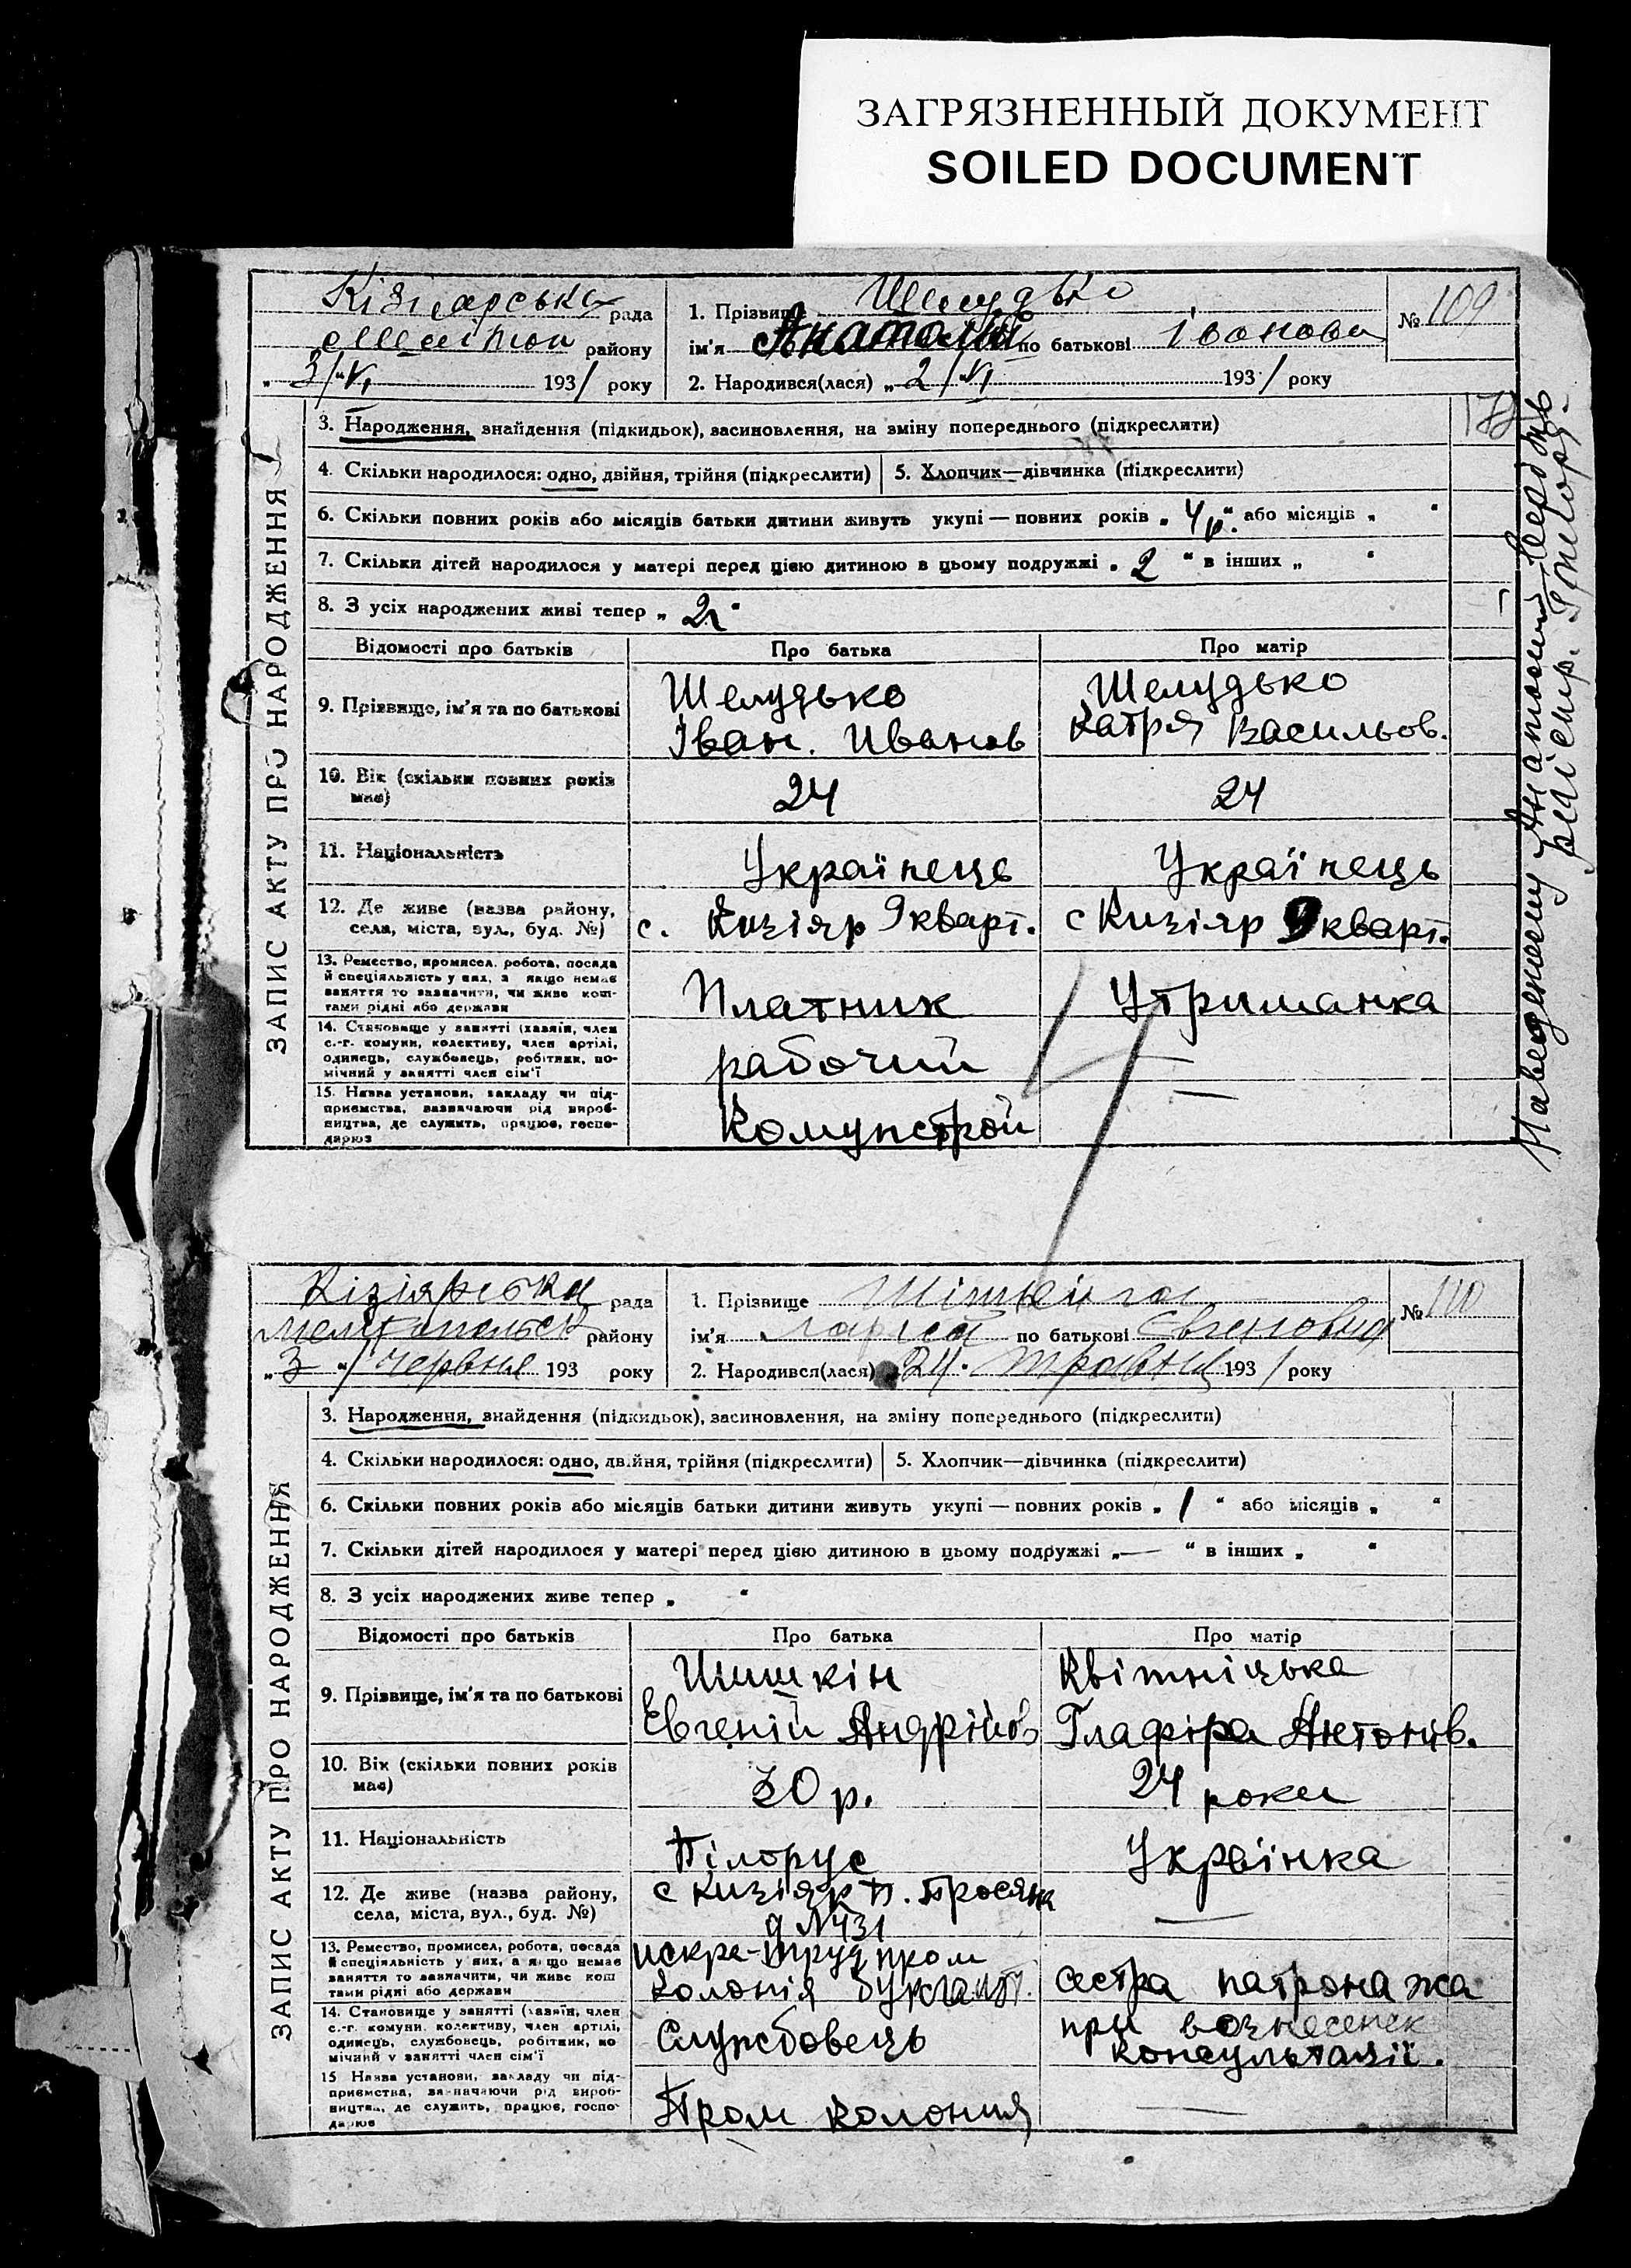 ЗАГРЯЗНЕННЫЙ ДОКУМЕНТ
SOILED DOCUMENT
Кізіярська рада
Меліtoп району
„ 3/"VI 1931 року
1. Прізвище Шелудько
ім'я Анатолій по батькові Іванови
2. Народився(лася) „ 2/"VI 1931 року
№ 109
ЗАПИС АКТУ ПРО НАРОДЖЕННЯ
3. Народження, знайдення (підкидьок), засиновлення, на зміну попереднього (підкреслити)
4. Скільки народилося: одно, двійня, трійня (підкреслити)
5. Хлопчик—дівчинка (підкреслити)
6. Скільки повних років або місяців батьки дитини живуть укупі — повних років „ 4 р“ або місяців „ “
7. Скільки дітей народилося у матері перед цією дитиною в цьому подружжі „ 2 “ в інших „ “
8. З усіх народжених живі тепер „ 2 “
Відомості про батьків Про батька Про матір
9. Прізвище, ім'я та по батькові
Шелудько
Іван. Иванов
Шелудько
Катря Васильов.
10. Вік (скільки повних років має)
24
24
11. Національність
Українець
Українець
12. Де живе (назва району,
села, міста, вул., буд. №)
с. Кизіяр 9 кварт.
с Кизіяр 9 кварт.
13. Ремество, промисел, робота, посада
й спеціяльність у них, а якщо немає
заняття то зазначити, чи живе кош-
тами рідні або держави
Платник
Утриманка
14. Становище у занятті (хазяїн, член
с.-г. комуни, колективу, член артілі,
одинець, службовець, робітник, по-
мічний у занятті член сім'ї
рабочий
—
15. Назва установи, закладу чи під-
приємства, зазначаючи рід вироб-
ництва, де служить, працює, госпо-
дарює
Комунстрой
—
Кізіярська рада
Мелітопольськ району
„ 3 “ червня 193 року
1. Прізвище
ім'я Лариса по батькові Євгеновна
2. Народився(лася) „ 24 " травня 1931 року
№ 110
ЗАПИС АКТУ ПРО НАРОДЖЕННЯ
3. Народження, знайдення (підкидьок), засиновлення, на зміну попереднього (підкреслити)
4. Скільки народилося: одно, двійня, трійня (підкреслити)
5. Хлопчик—дівчинка (підкреслити)
6. Скільки повних років або місяців батьки дитини живуть укупі — повних років „ 1 “ або місяців „ “
7. Скільки дітей народилося у матері перед цією дитиною в цьому подружжі „ — “ в інших „ “
8. З усіх народжених живе тепер „ “
Відомості про батьків Про батька Про матір
9. Прізвище, ім'я та по батькові
Шишкін
Евгеній Андрійов
Квітніцька
Глафіра Антонів.
10. Вік (скільки повних років
має)
30 р.
24 роки
11. Національність
Білорус
Українка
12. Де живе (назва району,
села, міста, вул., буд. №)
с Кизіяр
д №431
—
13. Ремество, промисел, робота, посада
й спеціяльність у них, а якщо немає
заняття то зазначити, чи живе кош
тами рідні або держави
пром
колонія
сестра патронажа
14. Становище у занятті (хазяїн, член
с.-г. комуни, колективу, член артілі,
одинець, службовець, робітник, по
мічний у занятті член сім'ї
Службовець
при вознесенск
консультації.
15 Назва установи, закладу чи під-
приємства, зазначаючи рід вироб-
ництва, де служить, працює, госпо-
дарює
Пром колония
—